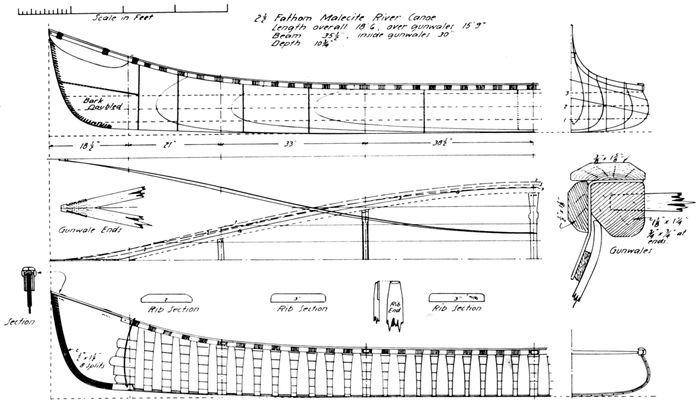 Scale in Feet
2½ Fathom Malecite River Canoe
Length overall 18'6, over gunwales 15'9"
Beam 35½", inside gunwales 30"
Depth 10¾"
Bark
Doubled
3
2
1
18½"
21"
33"
38½"
Gunwale Ends
Gunwales
ends.
Section
Rib Section
Rib Section
Rib
End
Rib Section
8 splits